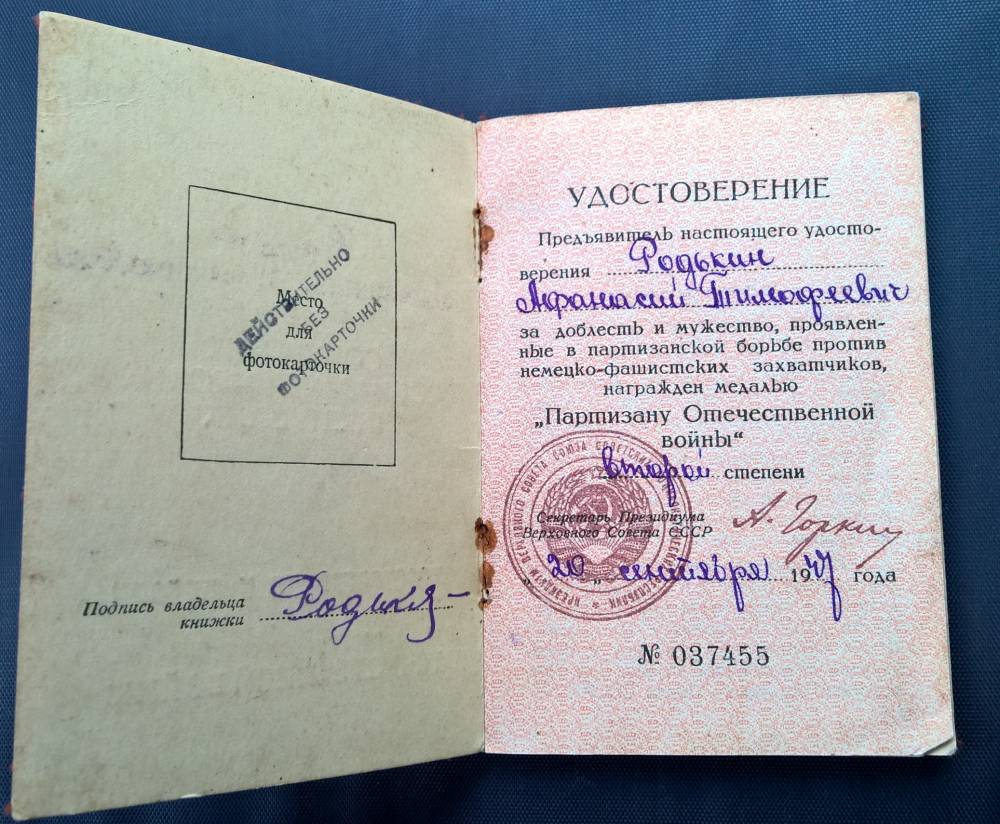 Место
для
фотокарточки
ДЕЙСТВИТЕЛЬНО
БЕЗ
ФОТОКАРТОЧКИ
Подпись владельца
книжки
УДОСТОВЕРЕНИЕ
Предъявитель настоящего удосто-
верения Родькин
Афанасий Тимофеевич
за доблесть и мужество, проявлен-
ные в партизанской борьбе против
немецко-фашистских захватчиков,
награжден медалью
„Партизану Отечественной
войны“
второй степени
Секретарь Президиума
Верховного Совета СССР
А. Горкин
„20„ сентября 1947 года
№ 037455